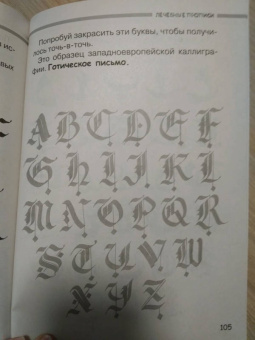 ЛЕЧЕБНЫЕ ПРОПИСИ
Попробуй закрасить эти буквы, чтобы получи-
лось точь-в-точь.
Это образец западноевропейской каллигра-
фии. Готическое письмо.
A B C D E F
G H I J K L
M N O P Q R
S T U V W
X Y Z
105